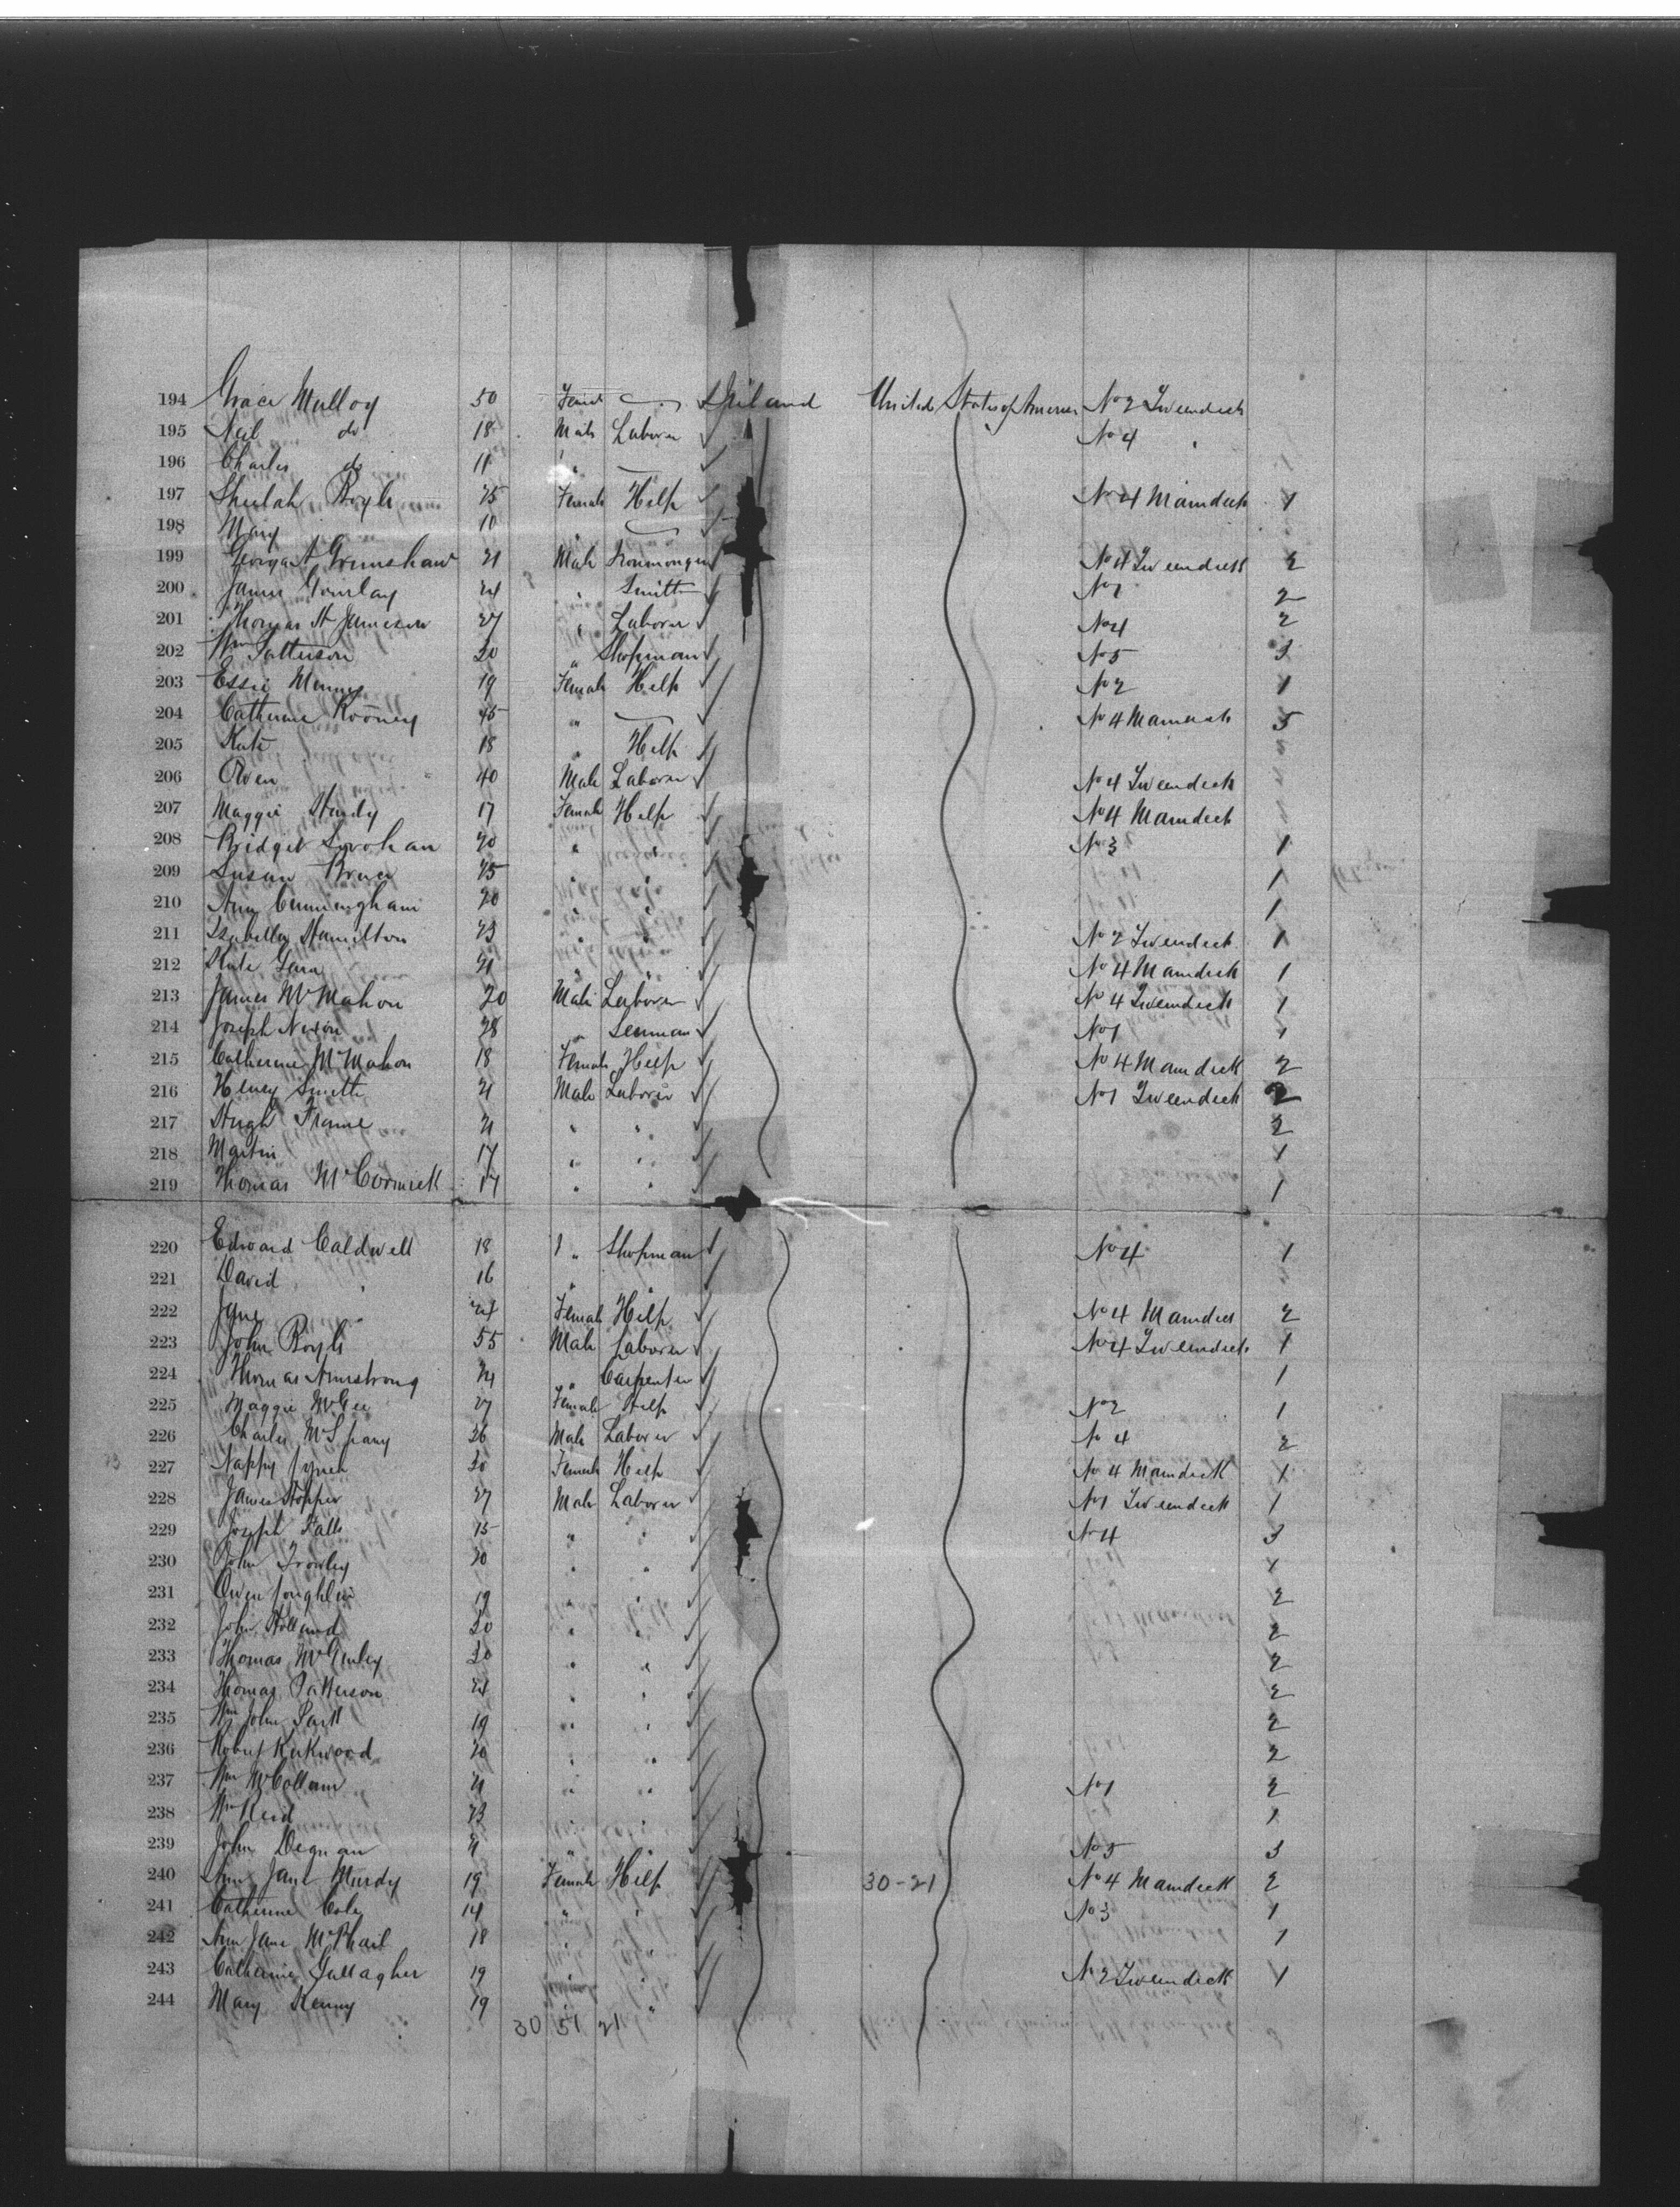 194 Grace Mulloy 50 Female Ireland United States of America No 2 Tweendeck
195 Neil do 18 Male Laborer No 4 "
196 Charles do 11 "
197 Sheelah Boyle 25 Female Help No 4 Maindeck 1
198 Mary 10 "
199 George A Grimshaw 21 Male Ironmonger No 4 Tweendeck 2
200 James Gourlay 24 " Smith No 1 2
201 Thomas H Jameson 27 " Laborer No 4 2
202 Wm Patterson 20 " Shopman No 5 3
203 Essie 19 Female Help No 2 1
204 Catherine Rooney 45 " No 4 Maindeck 5
205 Kate 18 " Help
206 Owen 40 Male Laborer No 4 Tweendeck
207 Maggie Hardy 17 Female Help No 4 Maindeck
208 Bridget 20 " No 3 1
209 Susan 25 " " 1
210 Ann Cunningham 20 " " 1
211 Isabella Hamilton 23 " " No 2 Tweendeck 1
212 Kate 21 " " No 4 Maindeck 1
213 James McMahon 20 Male Laborer No 4 Tweendeck 1
214 Joseph Nixon 28 " Seaman No 1 1
215 Catherine McMahon 18 Female Help No 4 Maindeck 2
216 Henry Smith 21 Male Laborer No 1 Tweendeck 2
217 Hugh Frame 21 " " 2
218 Martin 17 " " 1
219 Thomas McCormick 17 " " 1
220 Edward Caldwell 18 " Shopman No 4 1
221 David 16 " "
222 Jane 24 Female Help No 4 Maindeck 2
223 John Boyle 55 Male Laborer No 4 Tweendeck 1
224 Thomas Armstrong 24 " Carpenter 1
225 Maggie McGee 27 Female Help No 2 1
226 Charles 26 Male Laborer No 4 2
227 Nappy Lynch 20 Female Help No 4 Maindeck 1
228 James Hopper 27 Male Laborer No 1 Tweendeck 1
229 Joseph Falls 15 " " No 4 3
230 John 20 " " 1
231 Owen Loughlin 19 " " 2
232 John Holland 20 " " 2
233 Thomas McGinley 20 " " 2
234 Thomas Patterson 24 " " 2
235 Wm John Park 19 " " 2
236 Robert Kirkwood 20 " " 2
237 Wm McCollam 21 " " No 1 2
238 Wm Reid 23 " " 1
239 John Degnan 21 " " No 5 3
240 Ann Jane 19 Female Help 30-21 No 4 Maindeck 2
241 Catherine Cole 14 " " No 3 1
242 Ann Jane McPhail 18 " " 1
243 Catherine Gallagher 19 " " No 2 Tweendeck 1
244 Mary Kenny 19 " "
30 51 21